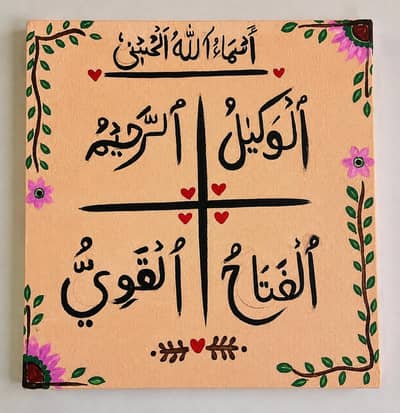 أَسْمَاءُ اللّٰهُ الْحُسْنٰى
اَلْوَكِيْلُ اَلرَّحِيْمُ
اَلْفَتَاحُ اَلْقَوِيُّ